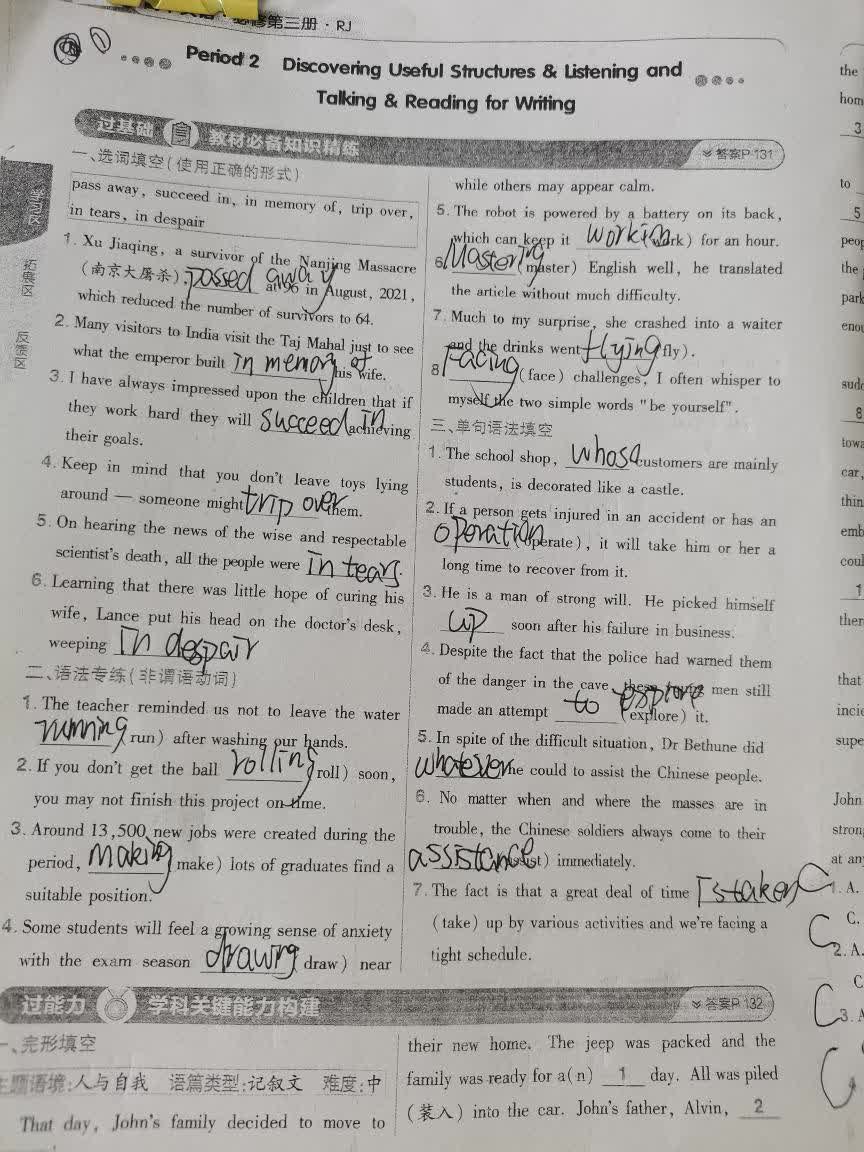 必修第三册·RJ
Period 2 Discovering Useful Structures & Listening and
Talking & Reading for Writing
过基础 教材必备知识精练
答案P.131
一、选词填空(使用正确的形式)
pass away, succeed in, in memory of, trip over,
in tears, in despair
1. Xu Jiaqing, a survivor of the Nanjing Massacre
(南京大屠杀), passed away at 96 in August, 2021,
which reduced the number of survivors to 64.
2. Many visitors to India visit the Taj Mahal just to see
what the emperor built in memory of his wife.
3. I have always impressed upon the children that if
they work hard they will succeed in achieving
their goals.
4. Keep in mind that you don't leave toys lying
around — someone might trip over them.
5. On hearing the news of the wise and respectable
scientist's death, all the people were in tears.
6. Learning that there was little hope of curing his
wife, Lance put his head on the doctor's desk,
weeping in despair
二、语法专练(非谓语动词)
1. The teacher reminded us not to leave the water
running (run) after washing our hands.
2. If you don't get the ball rolling (roll) soon,
you may not finish this project on time.
3. Around 13,500 new jobs were created during the
period, making (make) lots of graduates find a
suitable position.
4. Some students will feel a growing sense of anxiety
with the exam season drawing (draw) near
while others may appear calm.
5. The robot is powered by a battery on its back,
which can keep it working (work) for an hour.
6. Mastering (master) English well, he translated
the article without much difficulty.
7. Much to my surprise, she crashed into a waiter
and the drinks went flying (fly).
8. Facing (face) challenges, I often whisper to
myself the two simple words "be yourself".
三、单句语法填空
1. The school shop, whose customers are mainly
students, is decorated like a castle.
2. If a person gets injured in an accident or has an
operation (operate), it will take him or her a
long time to recover from it.
3. He is a man of strong will. He picked himself
up soon after his failure in business.
4. Despite the fact that the police had warned them
of the danger in the cave, these men still
made an attempt to explore (explore) it.
5. In spite of the difficult situation, Dr Bethune did
whatever he could to assist the Chinese people.
6. No matter when and where the masses are in
trouble, the Chinese soldiers always come to their
assistance (assist) immediately.
7. The fact is that a great deal of time is taken
(take) up by various activities and we're facing a
tight schedule.
过能力 学科关键能力构建
答案P.132
一、完形填空
主题语境:人与自我 语篇类型:记叙文 难度:中
That day, John's family decided to move to
their new home. The jeep was packed and the
family was ready for a(n) 1 day. All was piled
(装入) into the car. John's father, Alvin, 2
拓展区
反馈区
the
hom
3
to
5
peop
the
park
enou
sudd
8
towa
car,
thin
emb
coul
1
ther
that
incid
supe
John
stron
at an
1. A.
C.
2. A.
C
3. A